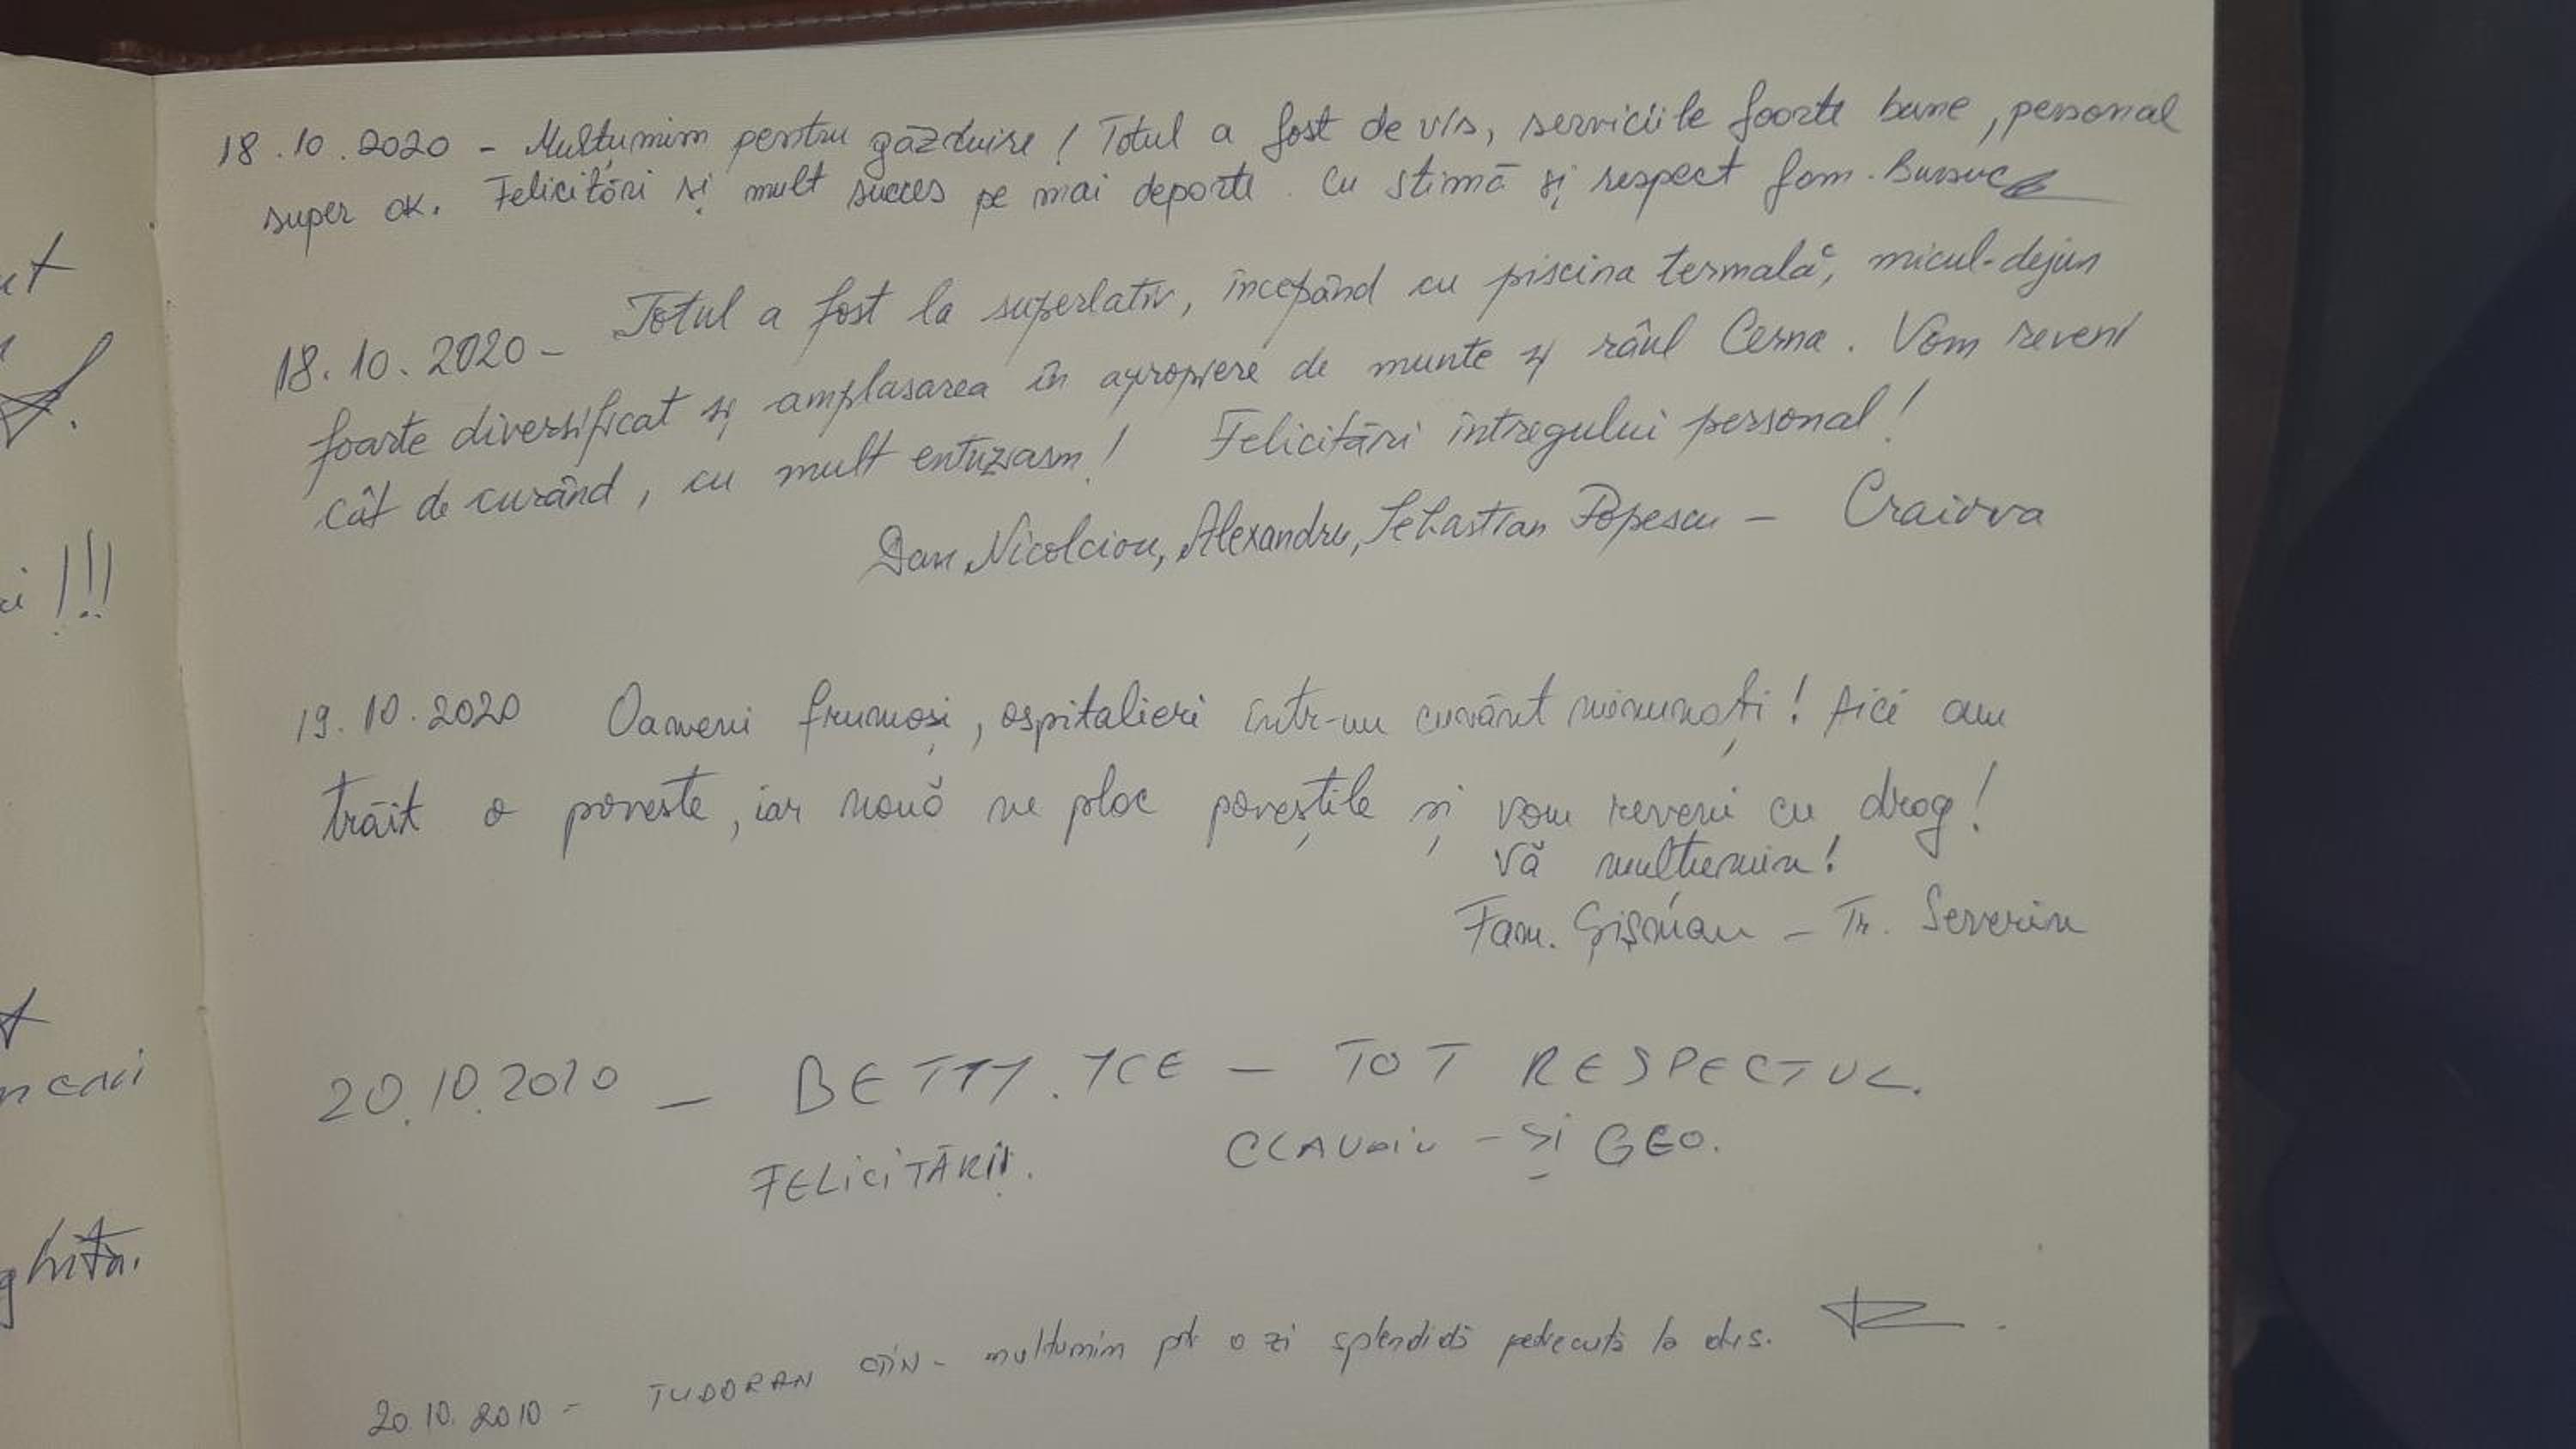 18.10.2020 - Mulțumim pentru găzduire! Totul a fost de vis, serviciile foarte bune, personal
super ok. Felicitări și mult succes pe mai departe. Cu stimă și respect fam.
18.10.2020 - Totul a fost la superlativ, începând cu piscina termală, micul-dejun
foarte diversificat și amplasarea în apropiere de munte și râul Cerna. Vom reveni
cât de curând, cu mult entuziasm! Felicitări întregului personal!
Dan, Alexandru, Sebastian Popescu - Craiova
19.10.2020 Oameni frumoși, ospitalieri într-un cuvânt minunați! Aici am
trăit o poveste, iar nouă ne plac poveștile și vom reveni cu drag!
Vă mulțumim!
Fam. - Tr. Severin
20.10.2010 - BETTY.ICE - TOT RESPECTUL.
FELICITĂRI!. CLAUDIU - ȘI GEO.
20.10.2010 - TUDORAN - multumim pt o zi splendidă petrecută la dvs.
ut
i !!!
t
ghița.